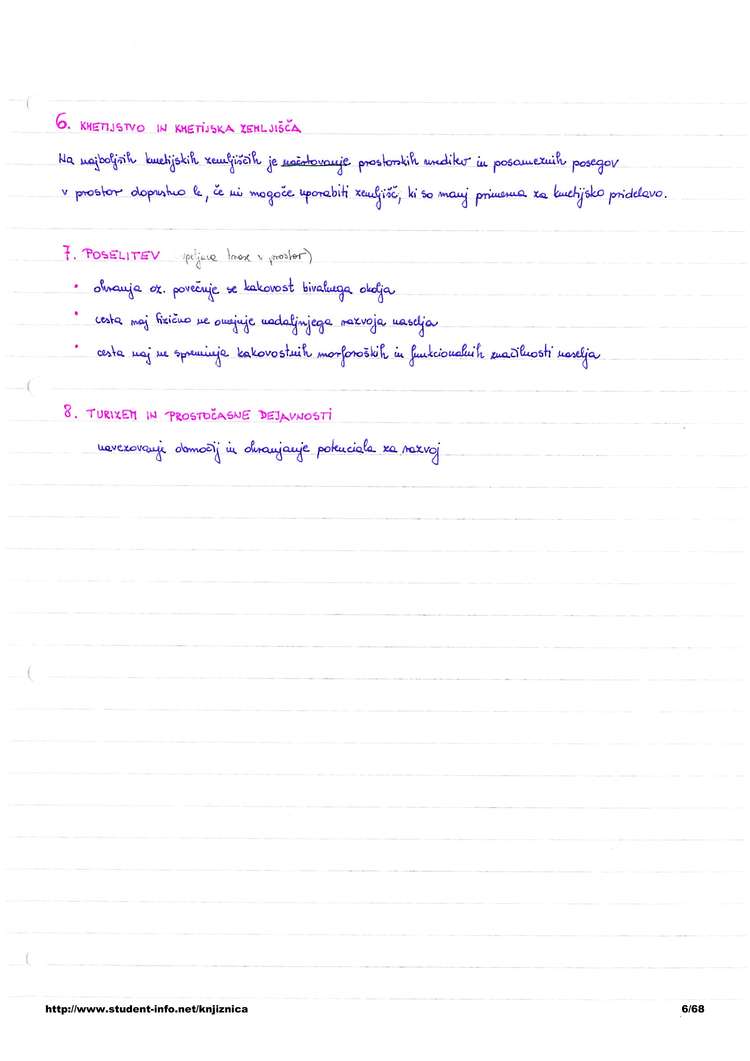 6. KMETIJSTVO IN KMETIJSKA ZEMLJIŠČA
Na najboljših kmetijskih zemljiščih je načrtovanje prostorskih ureditev in posameznih posegov
v prostor dopustno le, če ni mogoče uporabiti zemljišč, ki so manj primerna za kmetijsko pridelavo.
7. POSELITEV (peljava trase v prostor)
• ohranja oz. povečuje se kakovost bivalnega okolja
• cesta naj fizično ne omejuje nadaljnjega razvoja naselja
• cesta naj ne spreminja kakovostnih morforoških in funkcionalnih značilnosti naselja
8. TURIZEM IN PROSTOČASNE DEJAVNOSTI
navezovanje območij in ohranjanje potenciala za razvoj
http://www.student-info.net/knjiznica 6/68